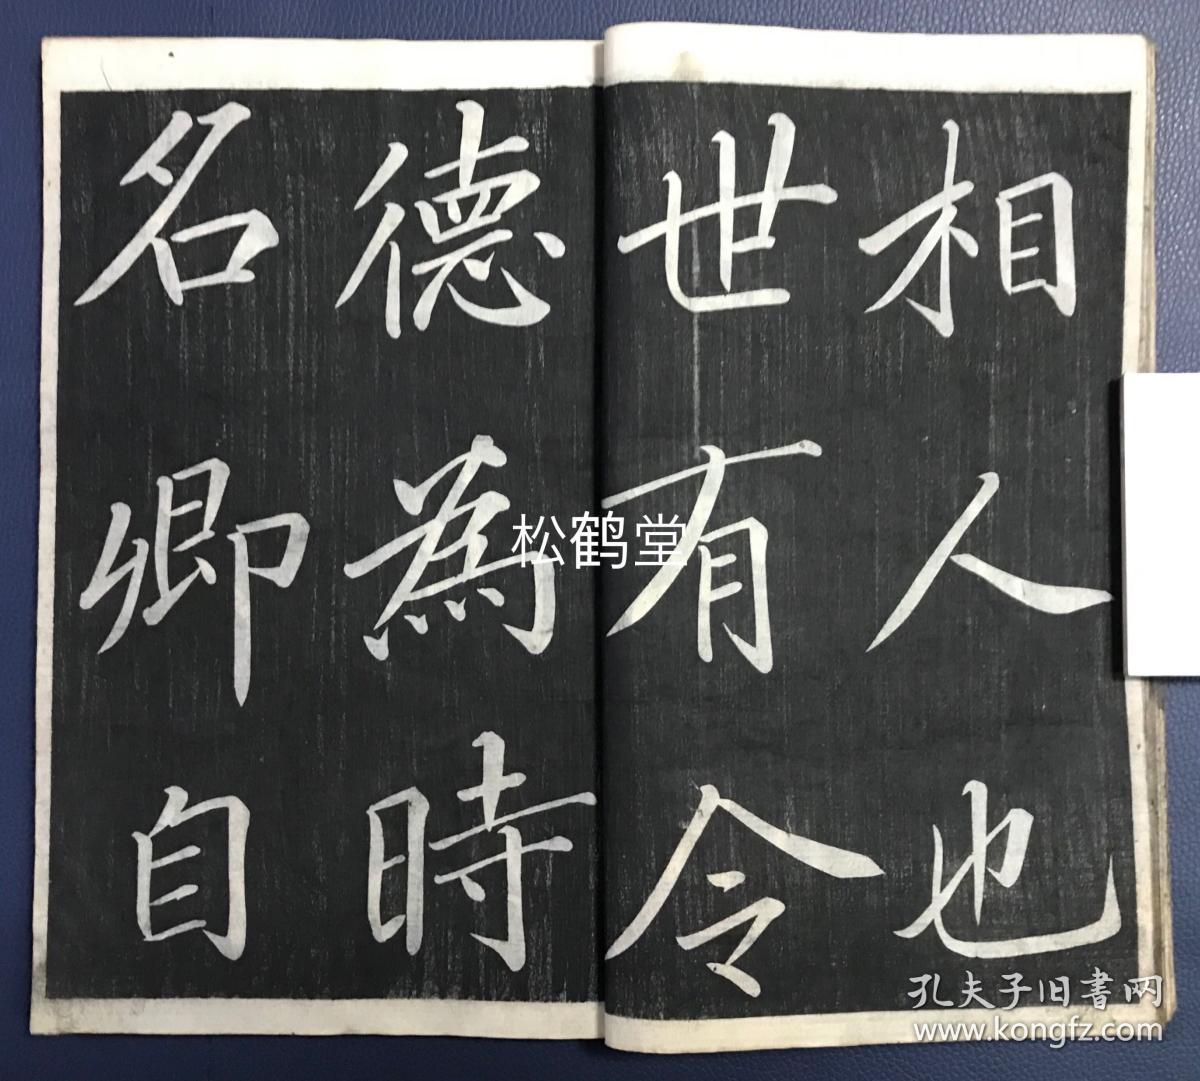 相人也
世有令
德為時
名卿自
松鹤堂
孔夫子旧書网
www.kongfz.com